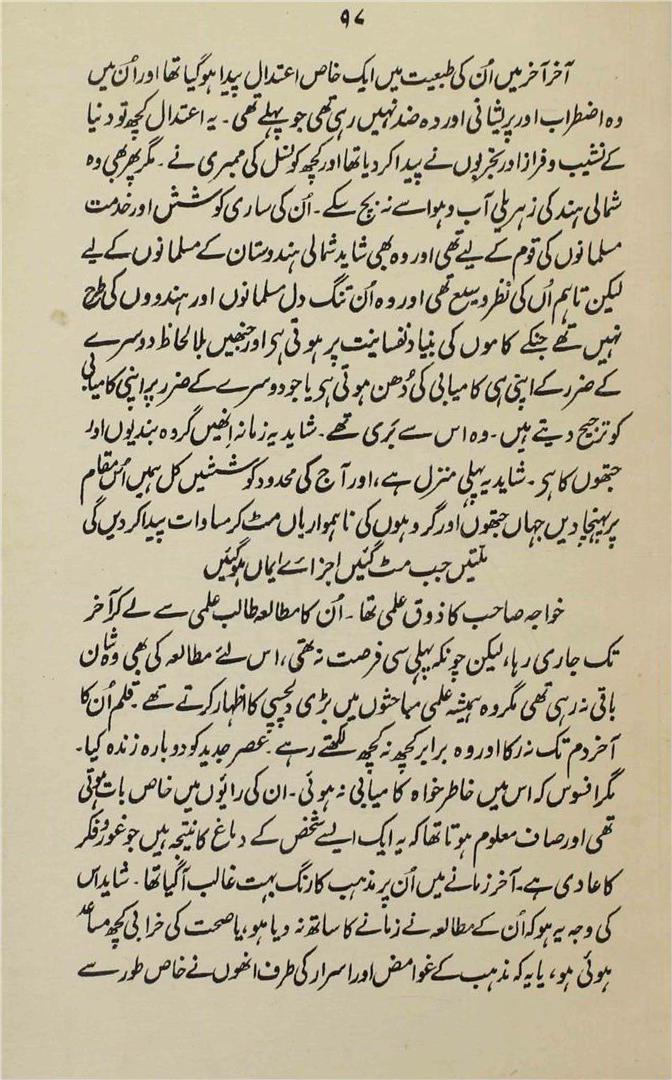 ۹۷
آخر آخر میں اُن کی طبیعت میں ایک خاص اعتدال پیدا ہوگیا تھا اور اُن میں
وہ اضطراب اور پریشانی اور وہ ضد نہیں رہی تھی جو پہلے تھی ۔ یہ اعتدال کچھ تو دنیا
کے نشیب و فراز اور تجربوں نے پیدا کردیا تھا اور کچھ کونسل کی ممبری نے ۔ مگر پھر بھی وہ
شمالی ہند کی زہریلی آب و ہوا سے نہ بچ سکے ۔ اُن کی ساری کوشش اور خدمت
مسلمانوں کی قوم کے لیے تھی اور وہ بھی شاید شمالی ہندوستان کے مسلمانوں کے لیے
لیکن تاہم اُن کی نظر وسیع تھی اور وہ اُن تنگ دل مسلمانوں اور ہندووں کی طرح
نہیں تھے جنکے کاموں کی بنیاد نفسانیت پر ہوتی ہی اور جنھیں بلا لحاظ دوسرے
کے ضرر کے اپنی ہی کامیابی کی دُھن ہوتی ہی یا جو دوسرے کے ضرر پر اپنی کامیابی
کو ترجیح دیتے ہیں ۔ وہ اس سے بَری تھے ۔ شاید یہ زمانہ اِنھیں گروہ بندیوں اور
جتھوں کا ہی ۔ شاید یہ پہلی منزل ہے ، اور آج کی محدود کوششیں کل ہمیں اُس مقام
پر پہنچا دیں جہاں جتھوں اور گروہوں کی ناہمواریاں مٹ کر مساوات پیدا کردیں گی
ملتیں جب مٹ گئیں اجزائے ایماں ہوگئیں
خواجہ صاحب کا ذوق علمی تھا ۔ اُن کا مطالعہ طالب علمی سے لے کر آخر
تک جاری رہا ، لیکن چونکہ پہلی سی فرصت نہ تھی ، اس لئے مطالعہ کی بھی وہ شان
باقی نہ رہی تھی مگر وہ ہمیشہ علمی مباحثوں میں بڑی دلچسپی کا اظہار کرتے تھے ۔ قلم اُن کا
آخر دم تک نہ رکا اور وہ برابر کچھ نہ کچھ لکھتے رہے ۔ عصر جدید کو دوبارہ زندہ کیا ۔
مگر افسوس کہ اس میں خاطر خواہ کامیابی نہ ہوئی ۔ ان کی رایوں میں خاص بات ہوتی
تھی اور صاف معلوم ہوتا تھا کہ یہ ایک ایسے شخص کے دماغ کا نتیجہ ہیں جو غور و فکر
کا عادی ہے ۔ آخر زمانے میں اُن پر مذہب کا رنگ بہت غالب آگیا تھا ۔ شاید اس
کی وجہ یہ ہو کہ اُن کے مطالعہ نے زمانے کا ساتھ نہ دیا ہو ، یا صحت کی خرابی کچھ مساعد
ہوئی ہو ، یا یہ کہ مذہب کے غوامض اور اسرار کی طرف انھوں نے خاص طور سے